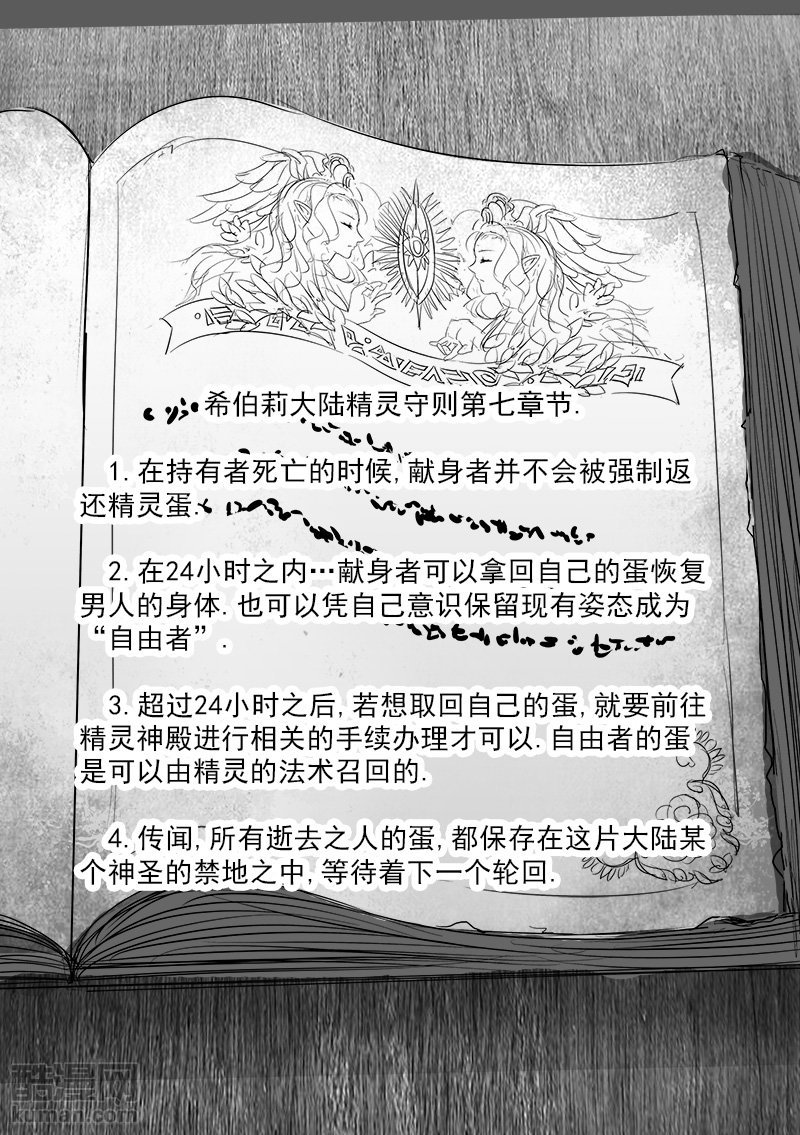 希伯莉大陆精灵守则第七章节.
1. 在持有者死亡的时候,献身者并不会被强制返
还精灵蛋.
2. 在24小时之内…献身者可以拿回自己的蛋恢复
男人的身体.也可以凭自己意识保留现有姿态成为
“自由者”.
3. 超过24小时之后,若想取回自己的蛋,就要前往
精灵神殿进行相关的手续办理才可以.自由者的蛋
是可以由精灵的法术召回的.
4. 传闻,所有逝去之人的蛋,都保存在这片大陆某
个神圣的禁地之中,等待着下一个轮回.
酷漫网
kuman.com